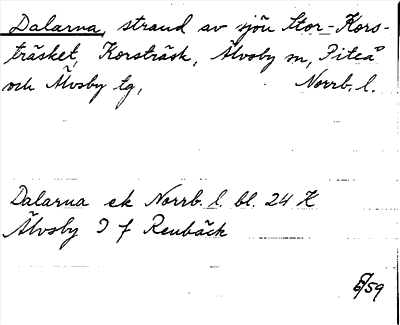 Dalarna, strand av sjön Stor-Kors-
träsket, Korsträsk, Älvsby sn, Piteå
och Älvsby tg, Norrb. l.
Dalarna ek Norrb. l. bl. 24 K
Älvsby I f Renbäck
/59